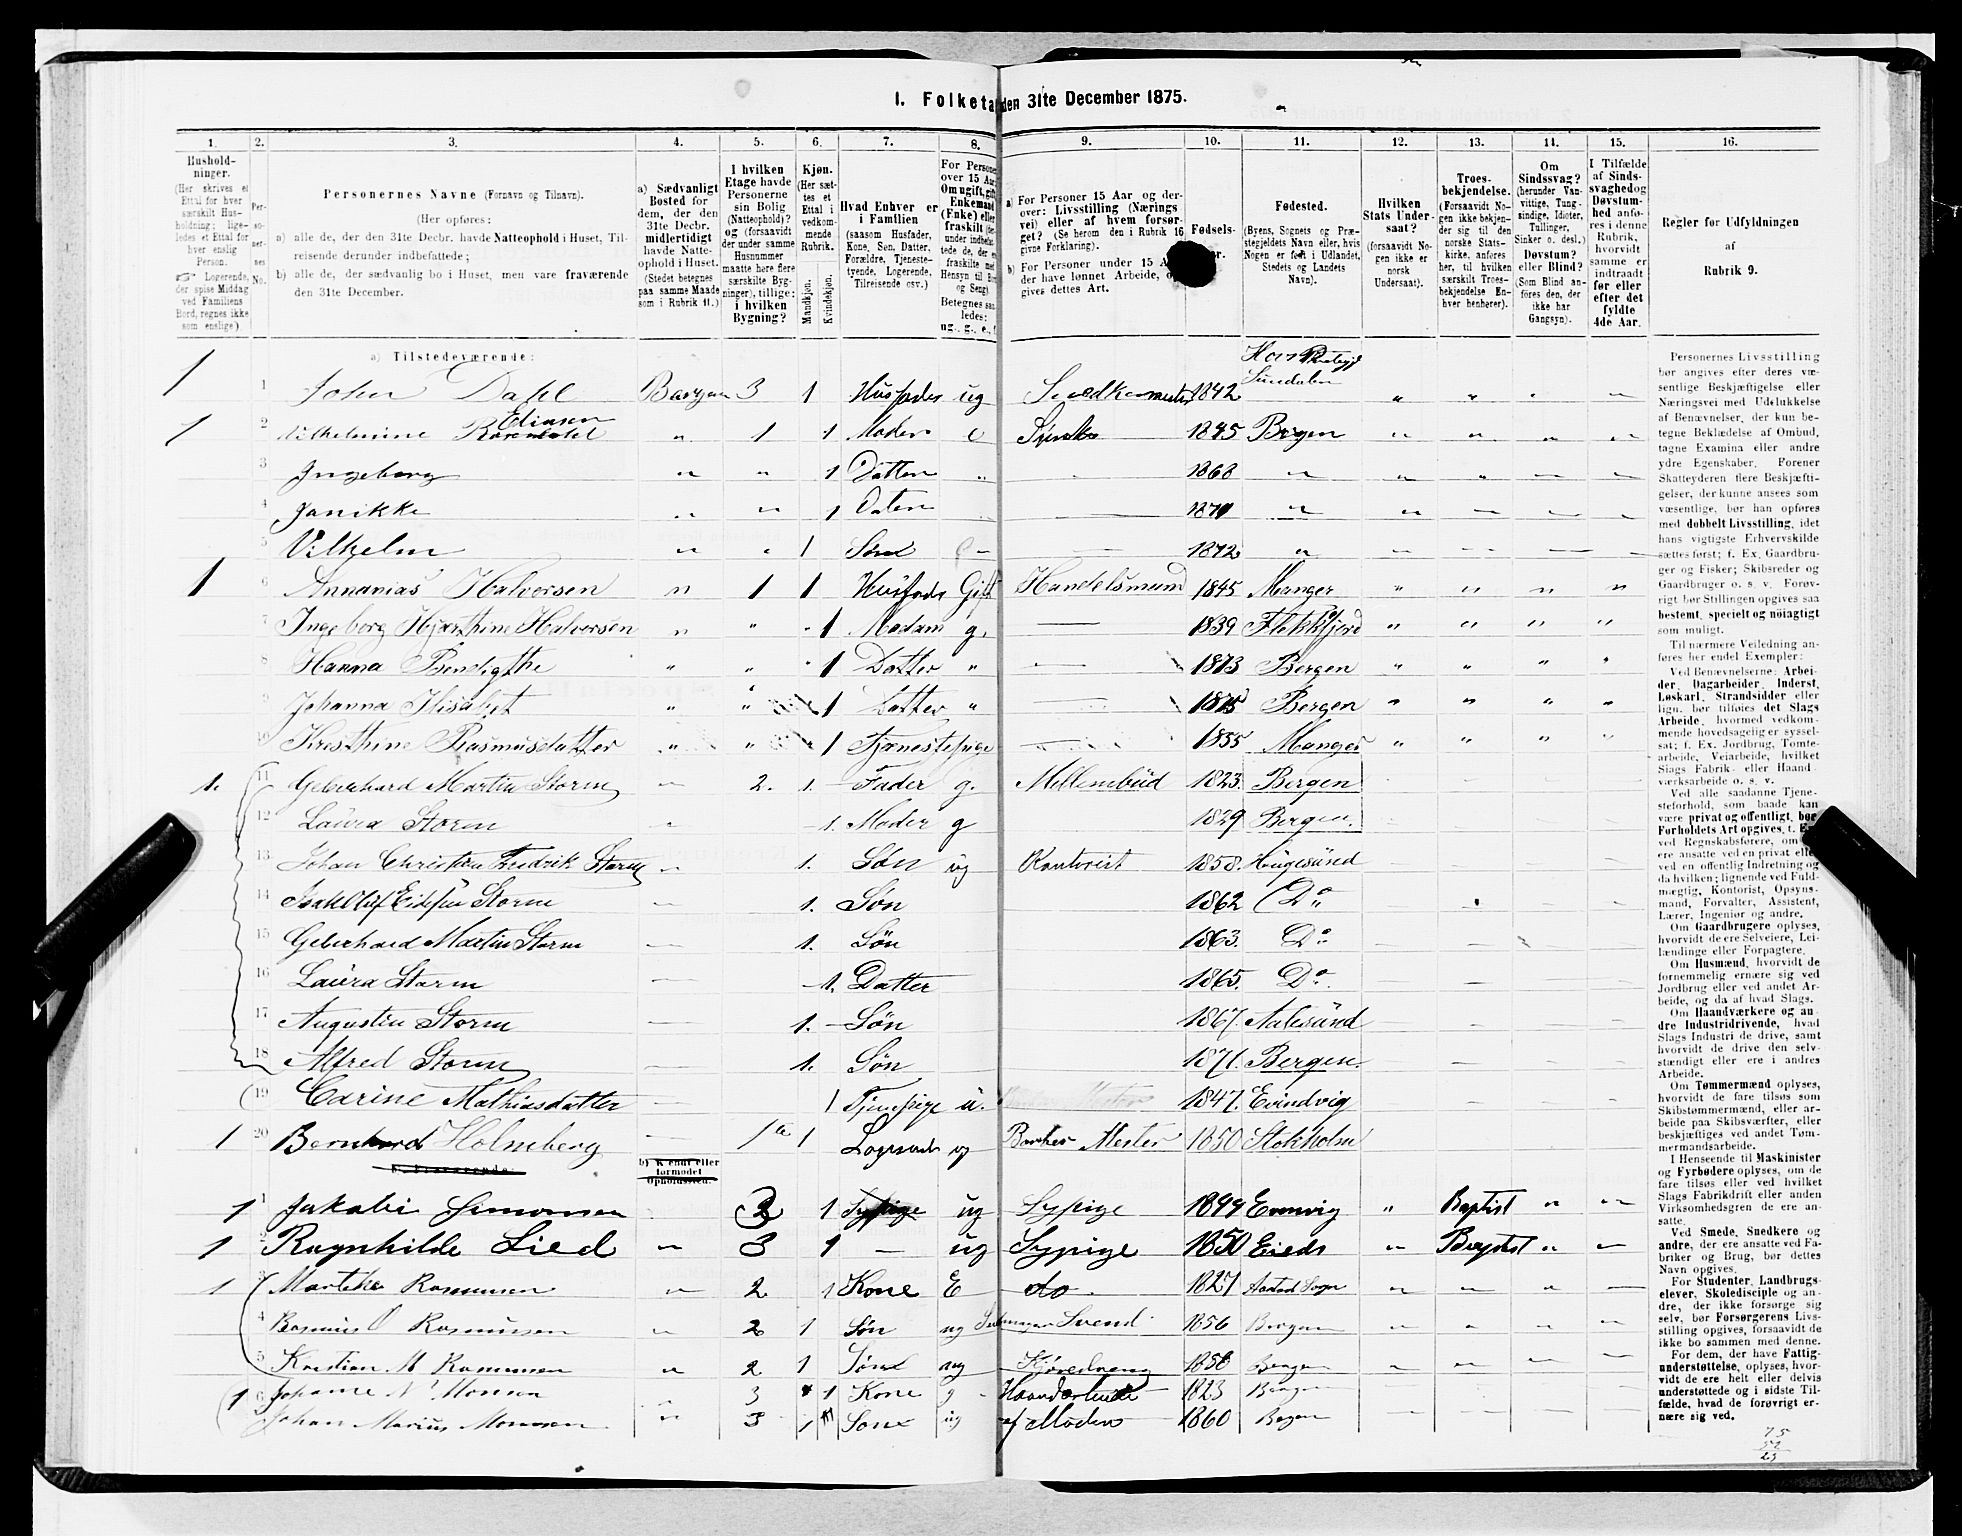 1. Folketa den 31te December 1875.
1. 2. 3. 4. 5. 6. 7. 8. 9. 10. 11. 12. 13. 14. 15. 16.
Hushold-
ninger.
(Her skrives et
Ettal for hver
særskilt Hus-
holdning; lige-
ledes et Ettal for
hver enslig
Person.
☞ Logerende,
der spise Middag
ved Familiens
Bord, regnes ikke
som enslige).
Per-
so-
ner-
nes
No.
Personernes Navne (Fornavn og Tilnavn).
(Her opføres:
a) alle de, der den 31te Decbr. havde Natteophold i Huset, Til-
reisende derunder indbefattede;
b) alle de, der sædvanlig bo i Huset, men vare fraværende
den 31te December.
a) Sædvanligt
Bosted for
dem, der den
31te Decbr.
midlertidigt
havde Natte-
ophold i Huset.
(Stedet betegnes
paa samme Maade
som i Rubrik 11.)
I hvilken
Etage havde
Personerne
sin Bolig
(Natteophold)?
og (forsaavidt
der under samme
Husnummer
maatte høre flere
særskilte Byg-
ninger), tillige:
i hvilken
Bygning?
Kjøn.
(Her sæt-
tes et
Ettal i
vedkom-
mende
Rubrik.
Mandkjøn.
Kvindekjøn.
Hvad Enhver er
i Familien
(saasom Husfader,
Kone, Søn, Datter,
Forældre, Tjeneste-
tyende, Logerende,
Tilreisende osv.)
For Persone
over 15 Aa
Om ugift, gift
Enkemand
(Enke) eller
fraskilt
Betegnes saa
ledes:
ug., g., e., f
a) For Personer 15 Aar og der-
over: Livsstilling (Nærings
vei) eller af hvem forsør-
get? (Se herom den i Rubrik 16
givne Forklaring).
b) For Personer under 15 A
der have lønnet Arbeide, o
gives dettes Art.
Fødsels-
r.
Fødested.
(Byens, Sognets og Præ-
stegjeldets Navn eller, hvis
Nogen er født i Udlandet,
Stedets og Landets
Navn).
Hvilken
Stats Under-
saat?
(forsaavidt No-
gen ikke er
norsk
Undersaat).
Troes-
bekjendelse.
(Forsaavidt No-
gen ikke bekjen-
der sig til den
norske Stats-
kirke, anføres
her, til hvilken
særskilt Troes-
bekjendelse En-
hver henhører).
Om
Sindssvag?
(herunder Van-
vittige, Tung-
sindige, Idioter,
Tullinger,
Sinker o. desl.)
Døvstum?
eller Blind?
(Som Blind an-
føres den, der
ikke har
Gangsyn).
I Tilfælde
af Sinds-
svaghed og
Døvstum-
hed anfø-
res i denne
Rubrik,
hvorvidt
samme er
indtraadt
før eller
efter det
fyldte
4de Aar.
Regler før Udfyldningen
af
Rubrik 9.
a) Tilstedeværende:
1 1 John Dahl Bergen 3 1 Husfader ug 1842 Sundalen
1 2 Vilhelmine Eliasen " 1 1 Moder e 1845 Bergen
3 Ingeborg " " 1 Datter " 1868 "
4 Janikke " " 1 Daten 1871 "
5 Vilhelm " " 1 Søn 1872 "
1 6 Annanias Halvorsen " 1 1 Husfader Gift Handelsmand 1845 Manger
7 Ingeborg Hjarthine Halvorsen " " 1 Madam g. 1839 Flekkfjord
8 Hanna Bendigthe " " 1 Datter " 1873 Bergen
9 Johanna Elisabet " " 1 Datter " 1875 Bergen
10 Kristhine Rasmusdatter " " 1 Tjænestepige 1855 Manger
1. 11 Geberhard Martin Storm 2. 1. Fader g. 1823. Bergen
12 Laura Storm 1. Moder g 1829 Bergen.
13 Johan Christian Fredrik Storm 1. Søn ug Kontorist 1858. Haugesund
14 Isak Oluf Storm 1. Søn 1862 Do
15 Geberhard Martin Storm 1. Søn 1863. Do
16 Laura Storm 1. Datter 1865. Do.
17 Augustin Storm 1. Søn 1867. Aalesund
18 Alfred Storm 1. Søn 1871. Bergen.
19 Carine Mathiasdatter 1 Tjenstpige u. 1847. Evindvig
1 20 Bernhard Holmberg 1 Logerende ug Mester 1850 Stokholm
b) Kjendt eller
formodet
Opholdssted.
1 1 Jakobi Simonsen 2 1 Sypige ug Sypige 1844 Evenvig " Baptist " "
1 2 Ragnhilde Lied " 3 1 ug Sypige 1850 Eids " Baptist " "
1 3 Marthe Rasmusen " 2 1 Kone E do 1827
4 Rasmus O Rasmusen " 2 1 Søn ug Svend 1856 Bergen
5 Kristian M Rasmusen " 2 1 Søn ug 1858 Bergen
1 6 Johanne Monsen 3 1 Kone g 1823 Bergen
Johan Marius Monsen " 3 1 Søn ug af Moderen 1860 Bergen
Personernes Livsstilling
bør angives efter deres væ-
sentlige Beskjæftigelse eller
Næringsvei med Udelukkelse
af Benævnelser, der kun be-
tegne Beklædelse af Ombud,
tagne Examina eller andre
ydre Egenskaber. Forener
Skatteyderen flere Beskjæfti-
gelser, der kunne ansees som
væsentlige, bør han opføres
med dobbelt Livsstilling, idet
hans vigtigste Erhvervskilde
sættes først; f. Ex. Gaardbru-
ger og Fisker; Skibsreder og
Gaardbruger o. s. v. Forøv-
rigt bør Stillingen opgives saa
bestemt, specielt og nøiagtigt
som muligt.
Til nærmere Veiledning an-
føres her endel Exempler:
Ved Benævnelserne: Arbei-
der, Dagarbeider, Inderst,
Løskarl, Strandsidder eller
lign. bør tilføies det Slags
Arbeide, hvormed vedkom-
mende hovedsagelig er syssel-
sat; f. Ex. Jordbrug, Tomte-
arbeide, Veiarbeide, hvilket
Slags Fabrik- eller Haand-
værksarbeide o. s. v.
Ved alle saadanne Tjene-
steforhold, som baade kan
være privat og offentligt, bør
Forholdets Art opgives, t. E
ved Regnskabsførere, om d
ere ansatte ved en privat elle
ved en offentlig Indretning og
da hvilken; lignende ved Fuld-
mægtig, Kontorist, Opsyns-
mand, Forvalter, Assistent,
Lærer, Ingeniør og andre.
Om Gaardbrugere oplyses,
hvorvidt de ere Selveiere, Lei-
lændinge eller Forpagtere.
Om Husmænd, hvorvidt de
fornemmelig ernære sig ved
Jordbrug eller ved andet Ar-
beide, og da af hvad Slags.
Om Haandværkere og an-
dre Industridrivende, hvad
Slags Industri de drive, samt
hvorvidt de drive den selv-
stændigt eller ere i andres
Arbeide.
Om Tømmermænd oplyses,
hvorvidt de fare tilsøs som
Skibstømmermænd, eller ar-
beide paa Skibsværfter, eller
beskjæftiges ved andet Tøm-
mermandsarbeide.
I Henseende til Maskinister
og Fyrbødere oplyses, om de
fare tilsøs eller ved hvilket
Slags Fabrikdrift eller anden
Virksomhedsgren de ere an-
satte.
Ved Smede, Snedkere og
andre, der ere ansatte ved Fa-
briker og Brug, bør dettes
Navn opgives.
For Studenter, Landbrugs-
elever, Skoledisciple og an-
dre, der ikke forsørge sig
selv, bør Forsørgerens Livs-
stilling opgives, forsaavidt de
ikke bo sammen med denne.
For dem, der have Fattig-
understøttelse, oplyses, hvor-
vidt de ere helt eller delvis
understøttede og i sidste Til-
fælde, hvad de forøvrigt er-
nære sig ved.
75
52
23